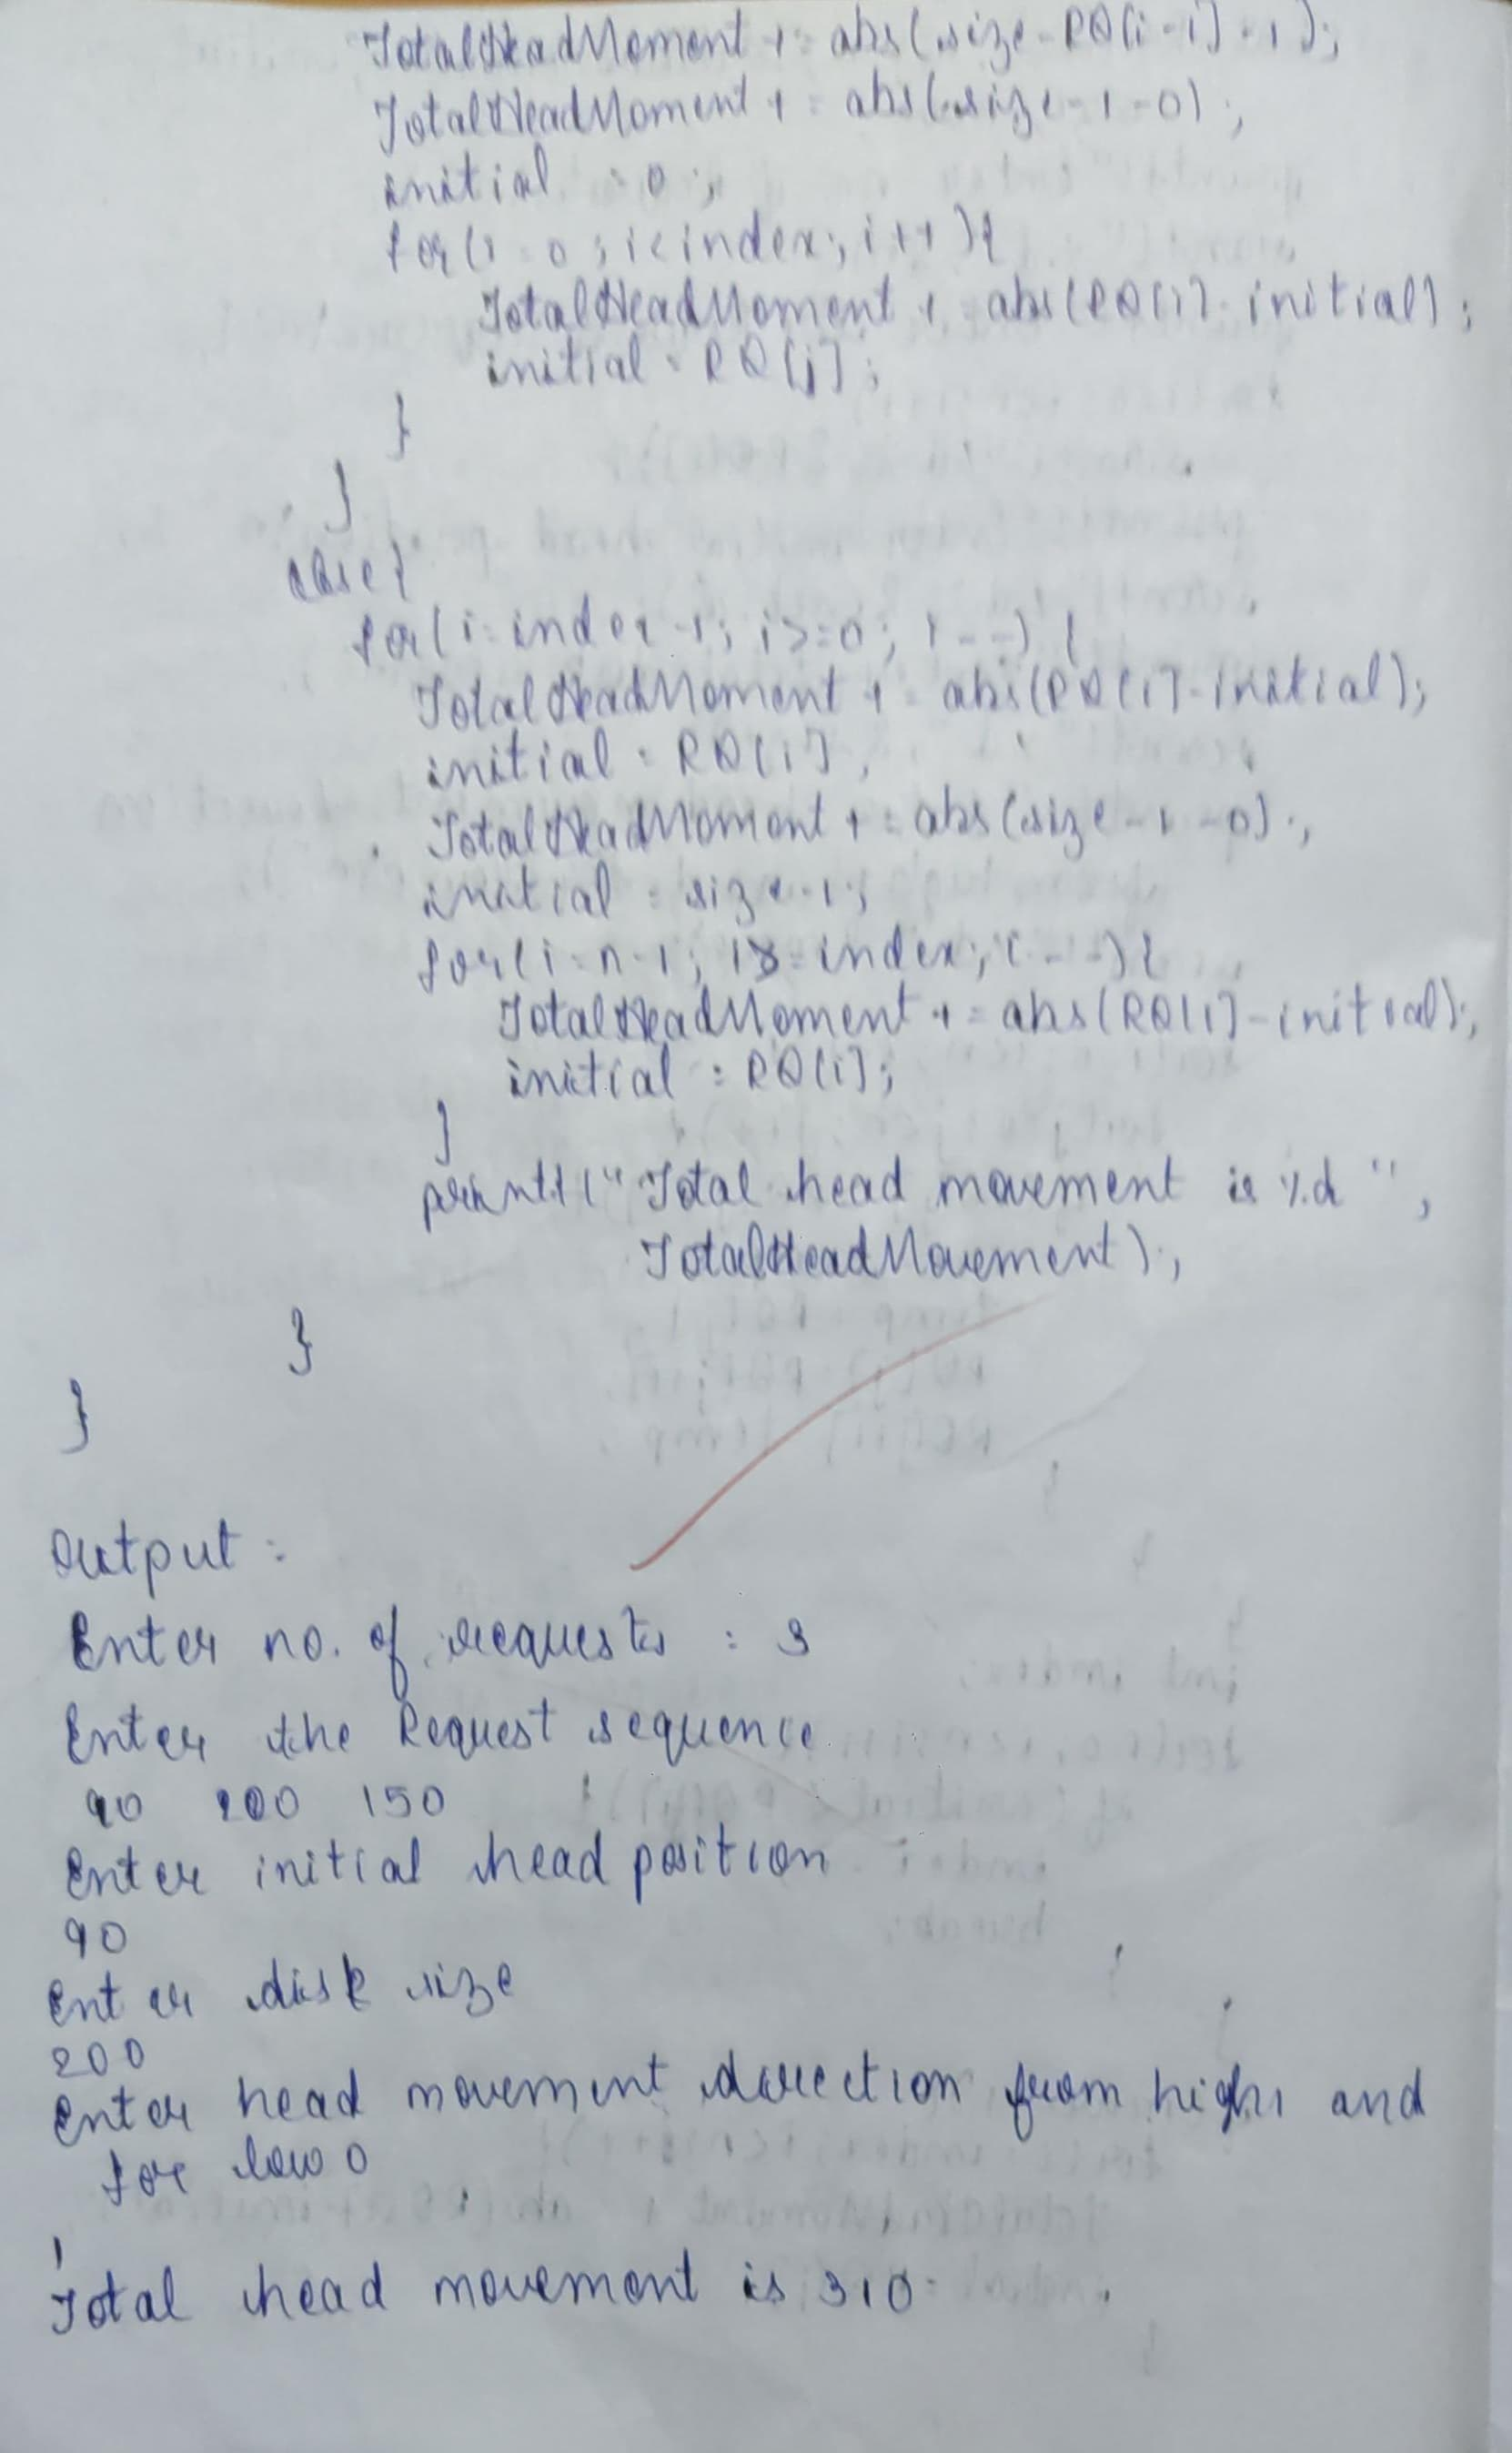 TotalHeadMoment += abs(size-RQ[i-1]-1);
TotalHeadMoment += abs(size-1-0);
initial = 0;
for(i=0;i<index;i++){
TotalHeadMoment += abs(RQ[i]-initial);
initial = RQ[i];
}
}
else{
for(i=index-1; i>=0; i--) {
TotalHeadMoment += abs(RQ[i]-initial);
initial = RQ[i];
TotalHeadMoment += abs(size-1-0);
initial = size-1;
for(i=n-1; i>=index; i--){
TotalHeadMoment += abs(RQ[i]-initial);
initial = RQ[i];
}
printf("Total head movement is %d ",
TotalHeadMovement);
}
}
Output :
Enter no. of requests : 3
Enter the Request sequence
90 200 150
Enter initial head position
90
Enter disk size
200
Enter head movement direction from high 1 and
for low 0
1
Total head movement is 310